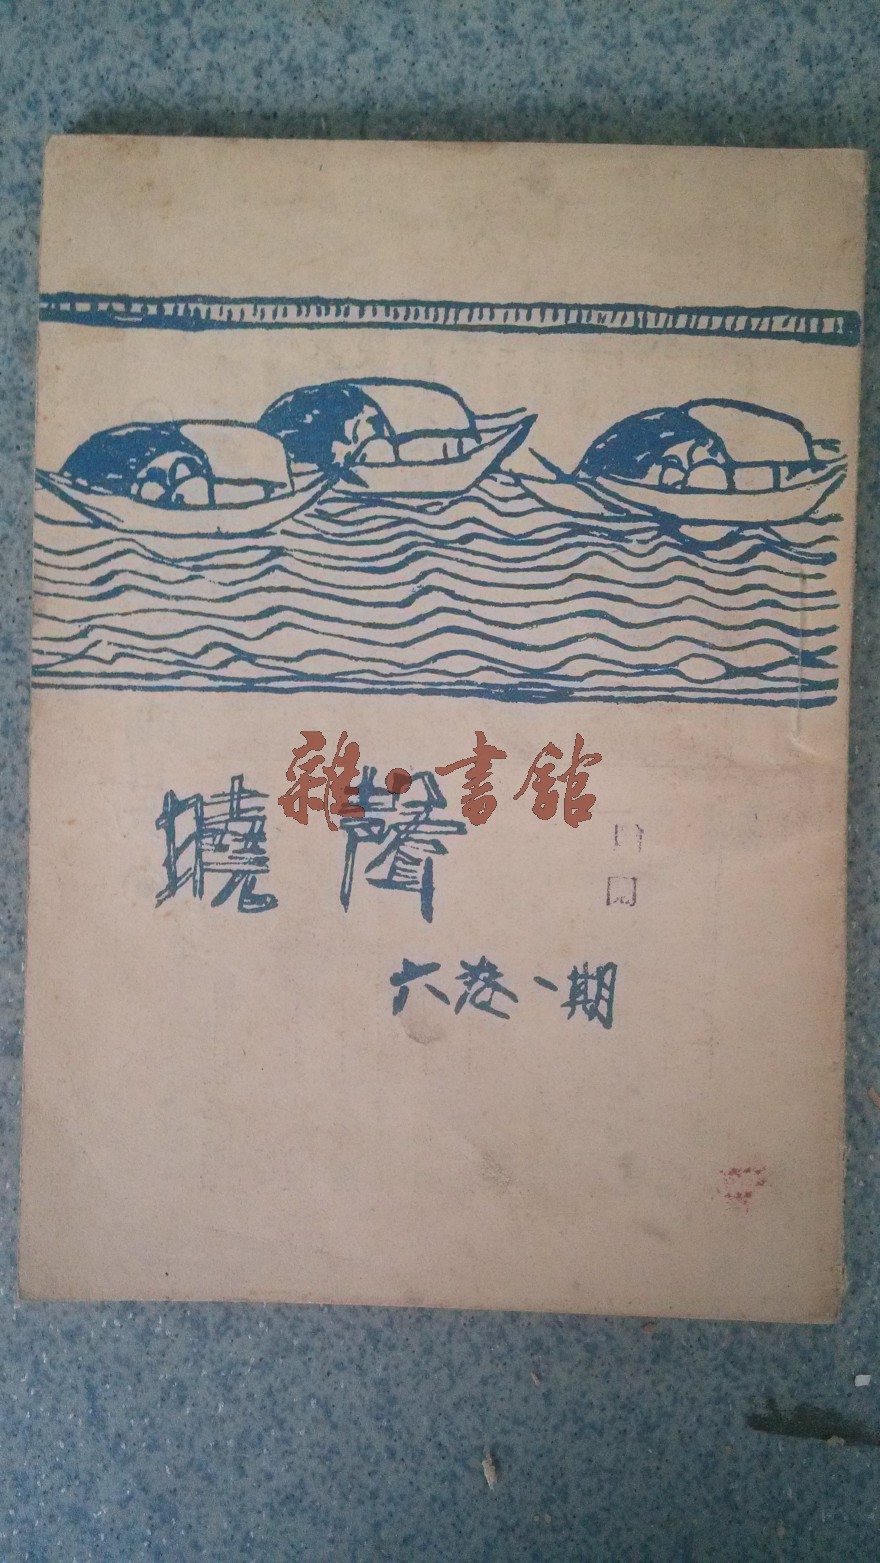 雜·書館
曉聲
六卷一期